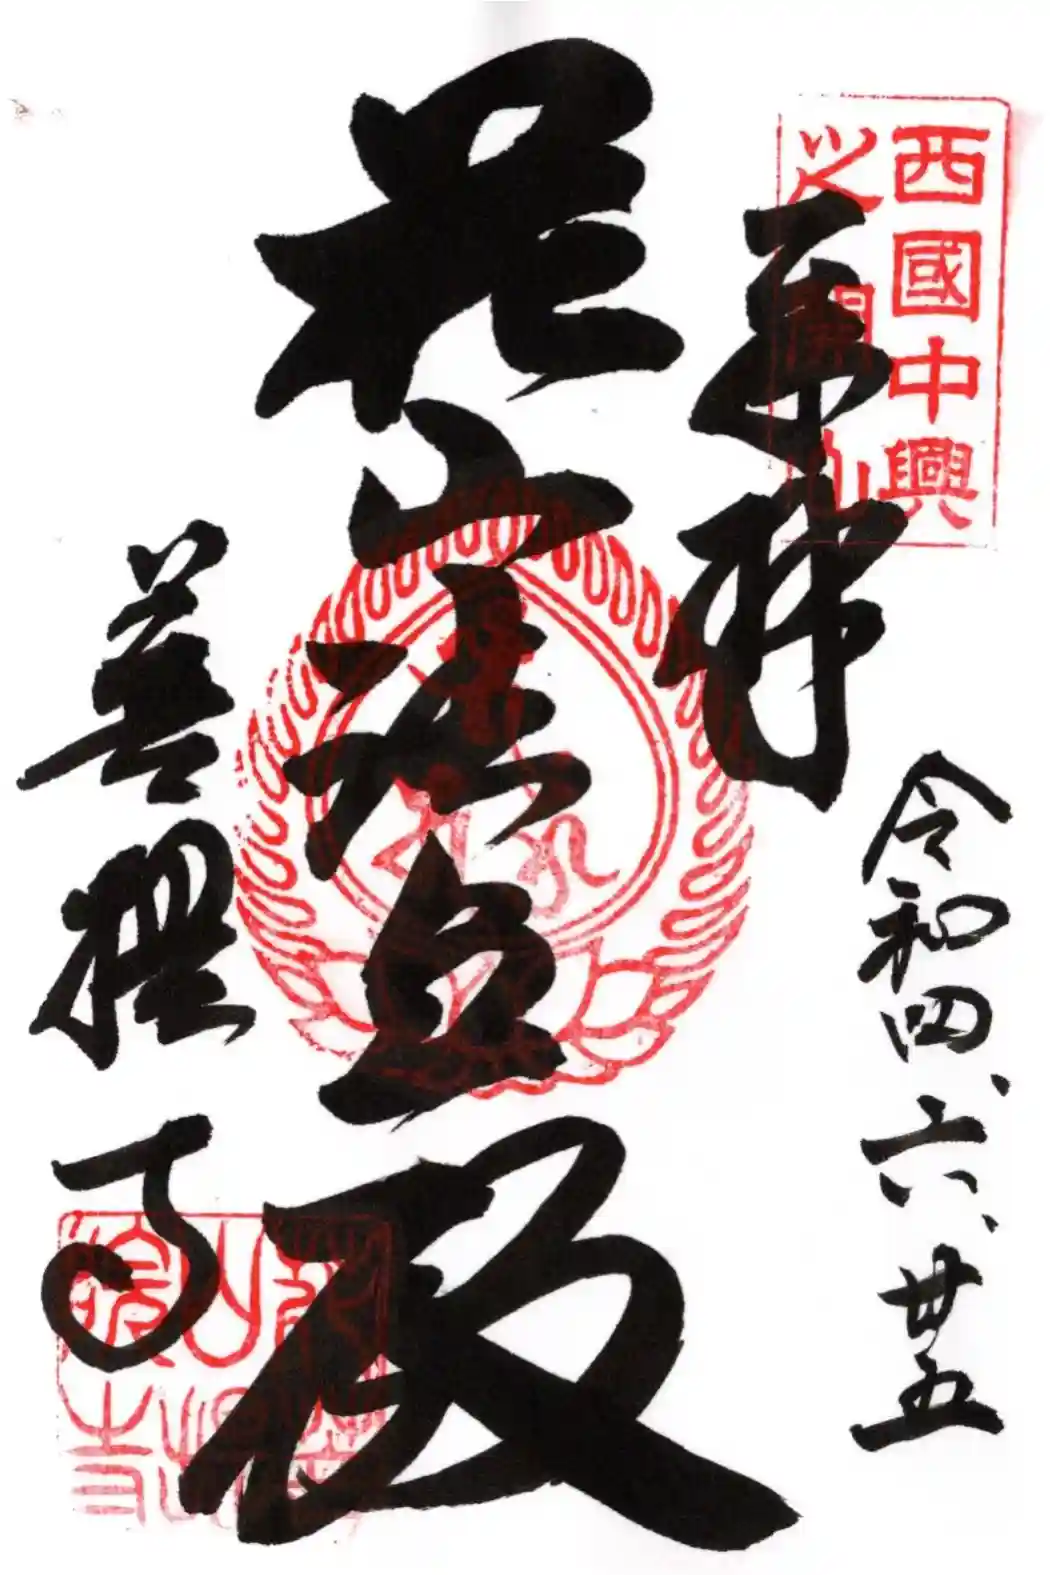 西國中興
之開山
奉拝
令和四、六、廿五
花山法皇殿
菩提寺